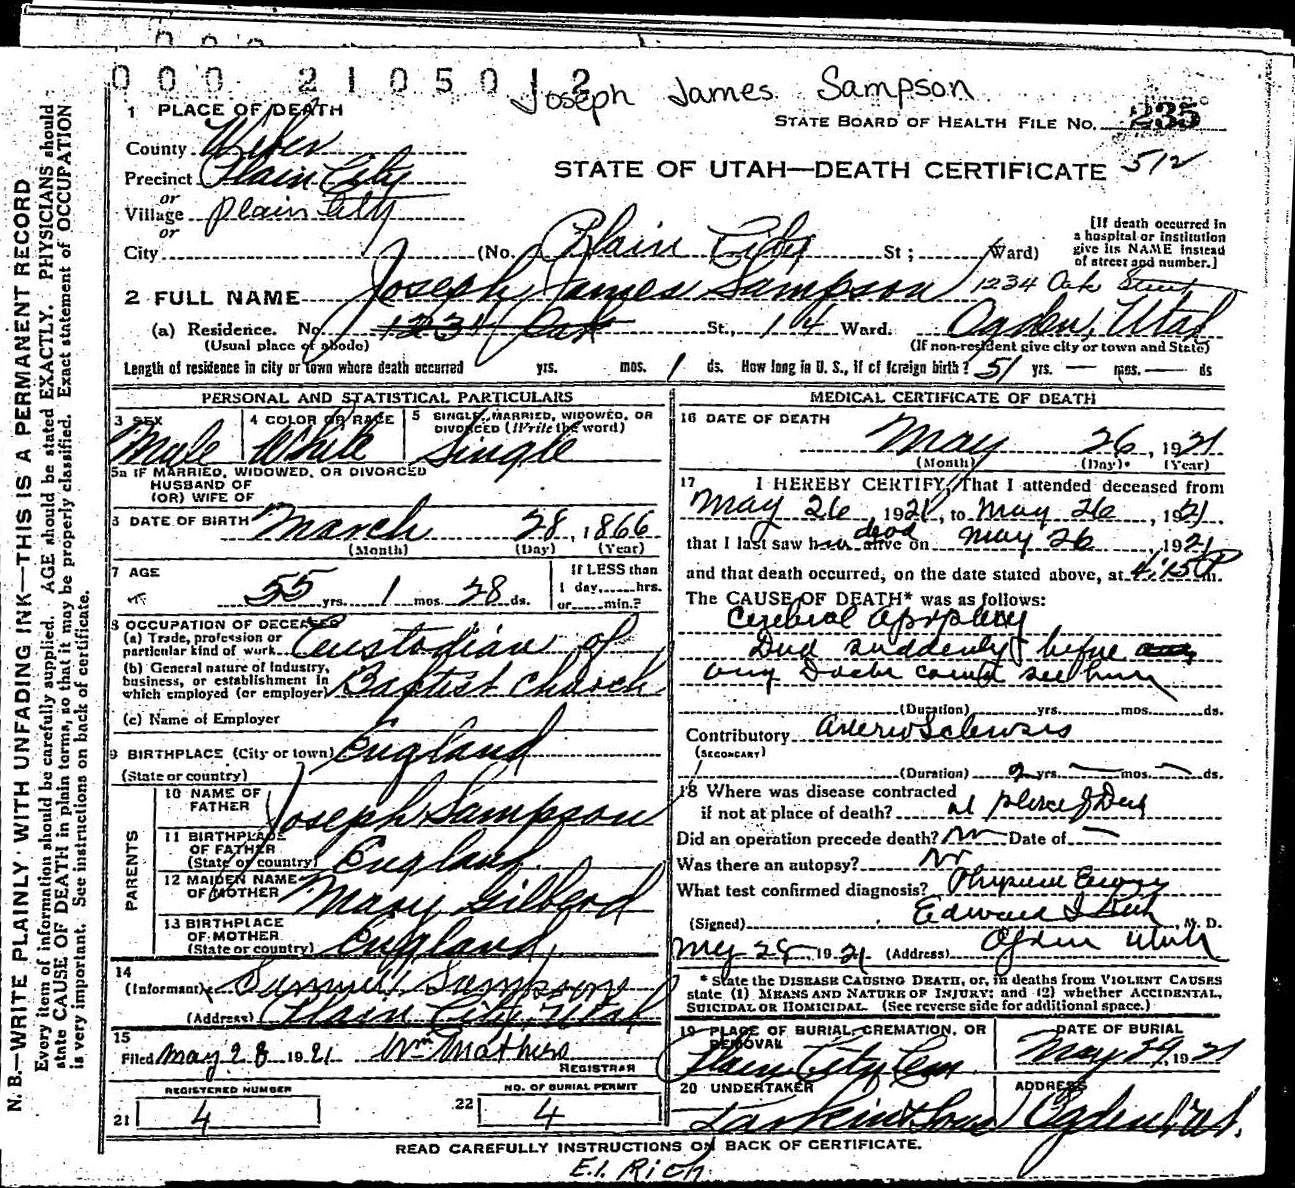 000 2105012
Joseph James Sampson
1 PLACE OF DEATH
STATE BOARD OF HEALTH FILE NO. 235
County Weber
512
Precinct Plain City
STATE OF UTAH—DEATH CERTIFICATE
or
Village Plain City
or
City (No. Plain City St; Ward)
[If death occurred in
a hospital or institution
give its NAME instead
of street and number.]
2 FULL NAME Joseph James Sampson 1234 Oak Street
(a) Residence. No. 1234 Oak St., 14 Ward. Ogden, Utah
(Usual place of abode) (If non-resident give city or town and State)
Length of residence in city or town where death occurred yrs. mos. 1 ds. How long in U. S., if of foreign birth? 51 yrs. — mos. — ds
PERSONAL AND STATISTICAL PARTICULARS
3 SEX Male
4 COLOR OR RACE White
5 SINGLE, MARRIED, WIDOWED, OR
DIVORCED (Write the word)
Single
5a IF MARRIED, WIDOWED, OR DIVORCED
HUSBAND OF
(OR) WIFE OF
6 DATE OF BIRTH March 28, 1866
(Month) (Day) (Year)
7 AGE
55 yrs. 1 mos. 28 ds.
If LESS than
1 day, hrs.
or min.?
8 OCCUPATION OF DECEASED
(a) Trade, profession or
particular kind of work Custodian of
(b) General nature of industry,
business, or establishment in
which employed (or employer) Baptist Church
(c) Name of Employer
9 BIRTHPLACE (City or town) England
(State or country)
PARENTS
10 NAME OF
FATHER Joseph Sampson
11 BIRTHPLACE
OF FATHER
(State or country) England
12 MAIDEN NAME
OF MOTHER Mary
13 BIRTHPLACE
OF MOTHER
(State or country) England
14
(Informant) Samuel Sampson
(Address) Plain City, Utah
15
Filed May 28 1921 Wm Mathers
REGISTRAR
REGISTERED NUMBER
21 4
NO. OF BURIAL PERMIT
22 4
MEDICAL CERTIFICATE OF DEATH
16 DATE OF DEATH
May 26, 1921
(Month) (Day) (Year)
17 I HEREBY CERTIFY, That I attended deceased from
May 26, 1921, to May 26, 1921.
that I last saw him alive on dead May 26, 1921
and that death occurred, on the date stated above, at 4:15 P m.
The CAUSE OF DEATH* was as follows:
Cerebral Apoplexy
Died suddenly before any
any Doctor could see him
(Duration) yrs. mos. ds.
Contributory Arterio Sclerosis
(SECONDARY)
(Duration) 2 yrs. — mos. — ds.
18 Where was disease contracted
if not at place of death? at place of Death
Did an operation precede death? No Date of —
Was there an autopsy? No
What test confirmed diagnosis? Physical
(Signed) Edward I Rich, M. D.
May 28 1921 (Address) Ogden Utah
* State the DISEASE CAUSING DEATH, or, in deaths from VIOLENT CAUSES
state (1) MEANS AND NATURE OF INJURY; and (2) whether ACCIDENTAL,
SUICIDAL OR HOMICIDAL. (See reverse side for additional space.)
19 PLACE OF BURIAL, CREMATION, OR
REMOVAL
Plain City Cem
DATE OF BURIAL
May 29, 1921
20 UNDERTAKER
Larkin & Sons
ADDRESS
Ogden, Ut.
READ CAREFULLY INSTRUCTIONS ON BACK OF CERTIFICATE.
E.I. Rich
N. B.—WRITE PLAINLY WITH UNFADING INK—THIS IS A PERMANENT RECORD
Every item of information should be carefully supplied. AGE should be stated EXACTLY. PHYSICIANS should
state CAUSE OF DEATH in plain terms, so that it may be properly classified. Exact statement of OCCUPATION
is very important. See instructions on back of certificate.